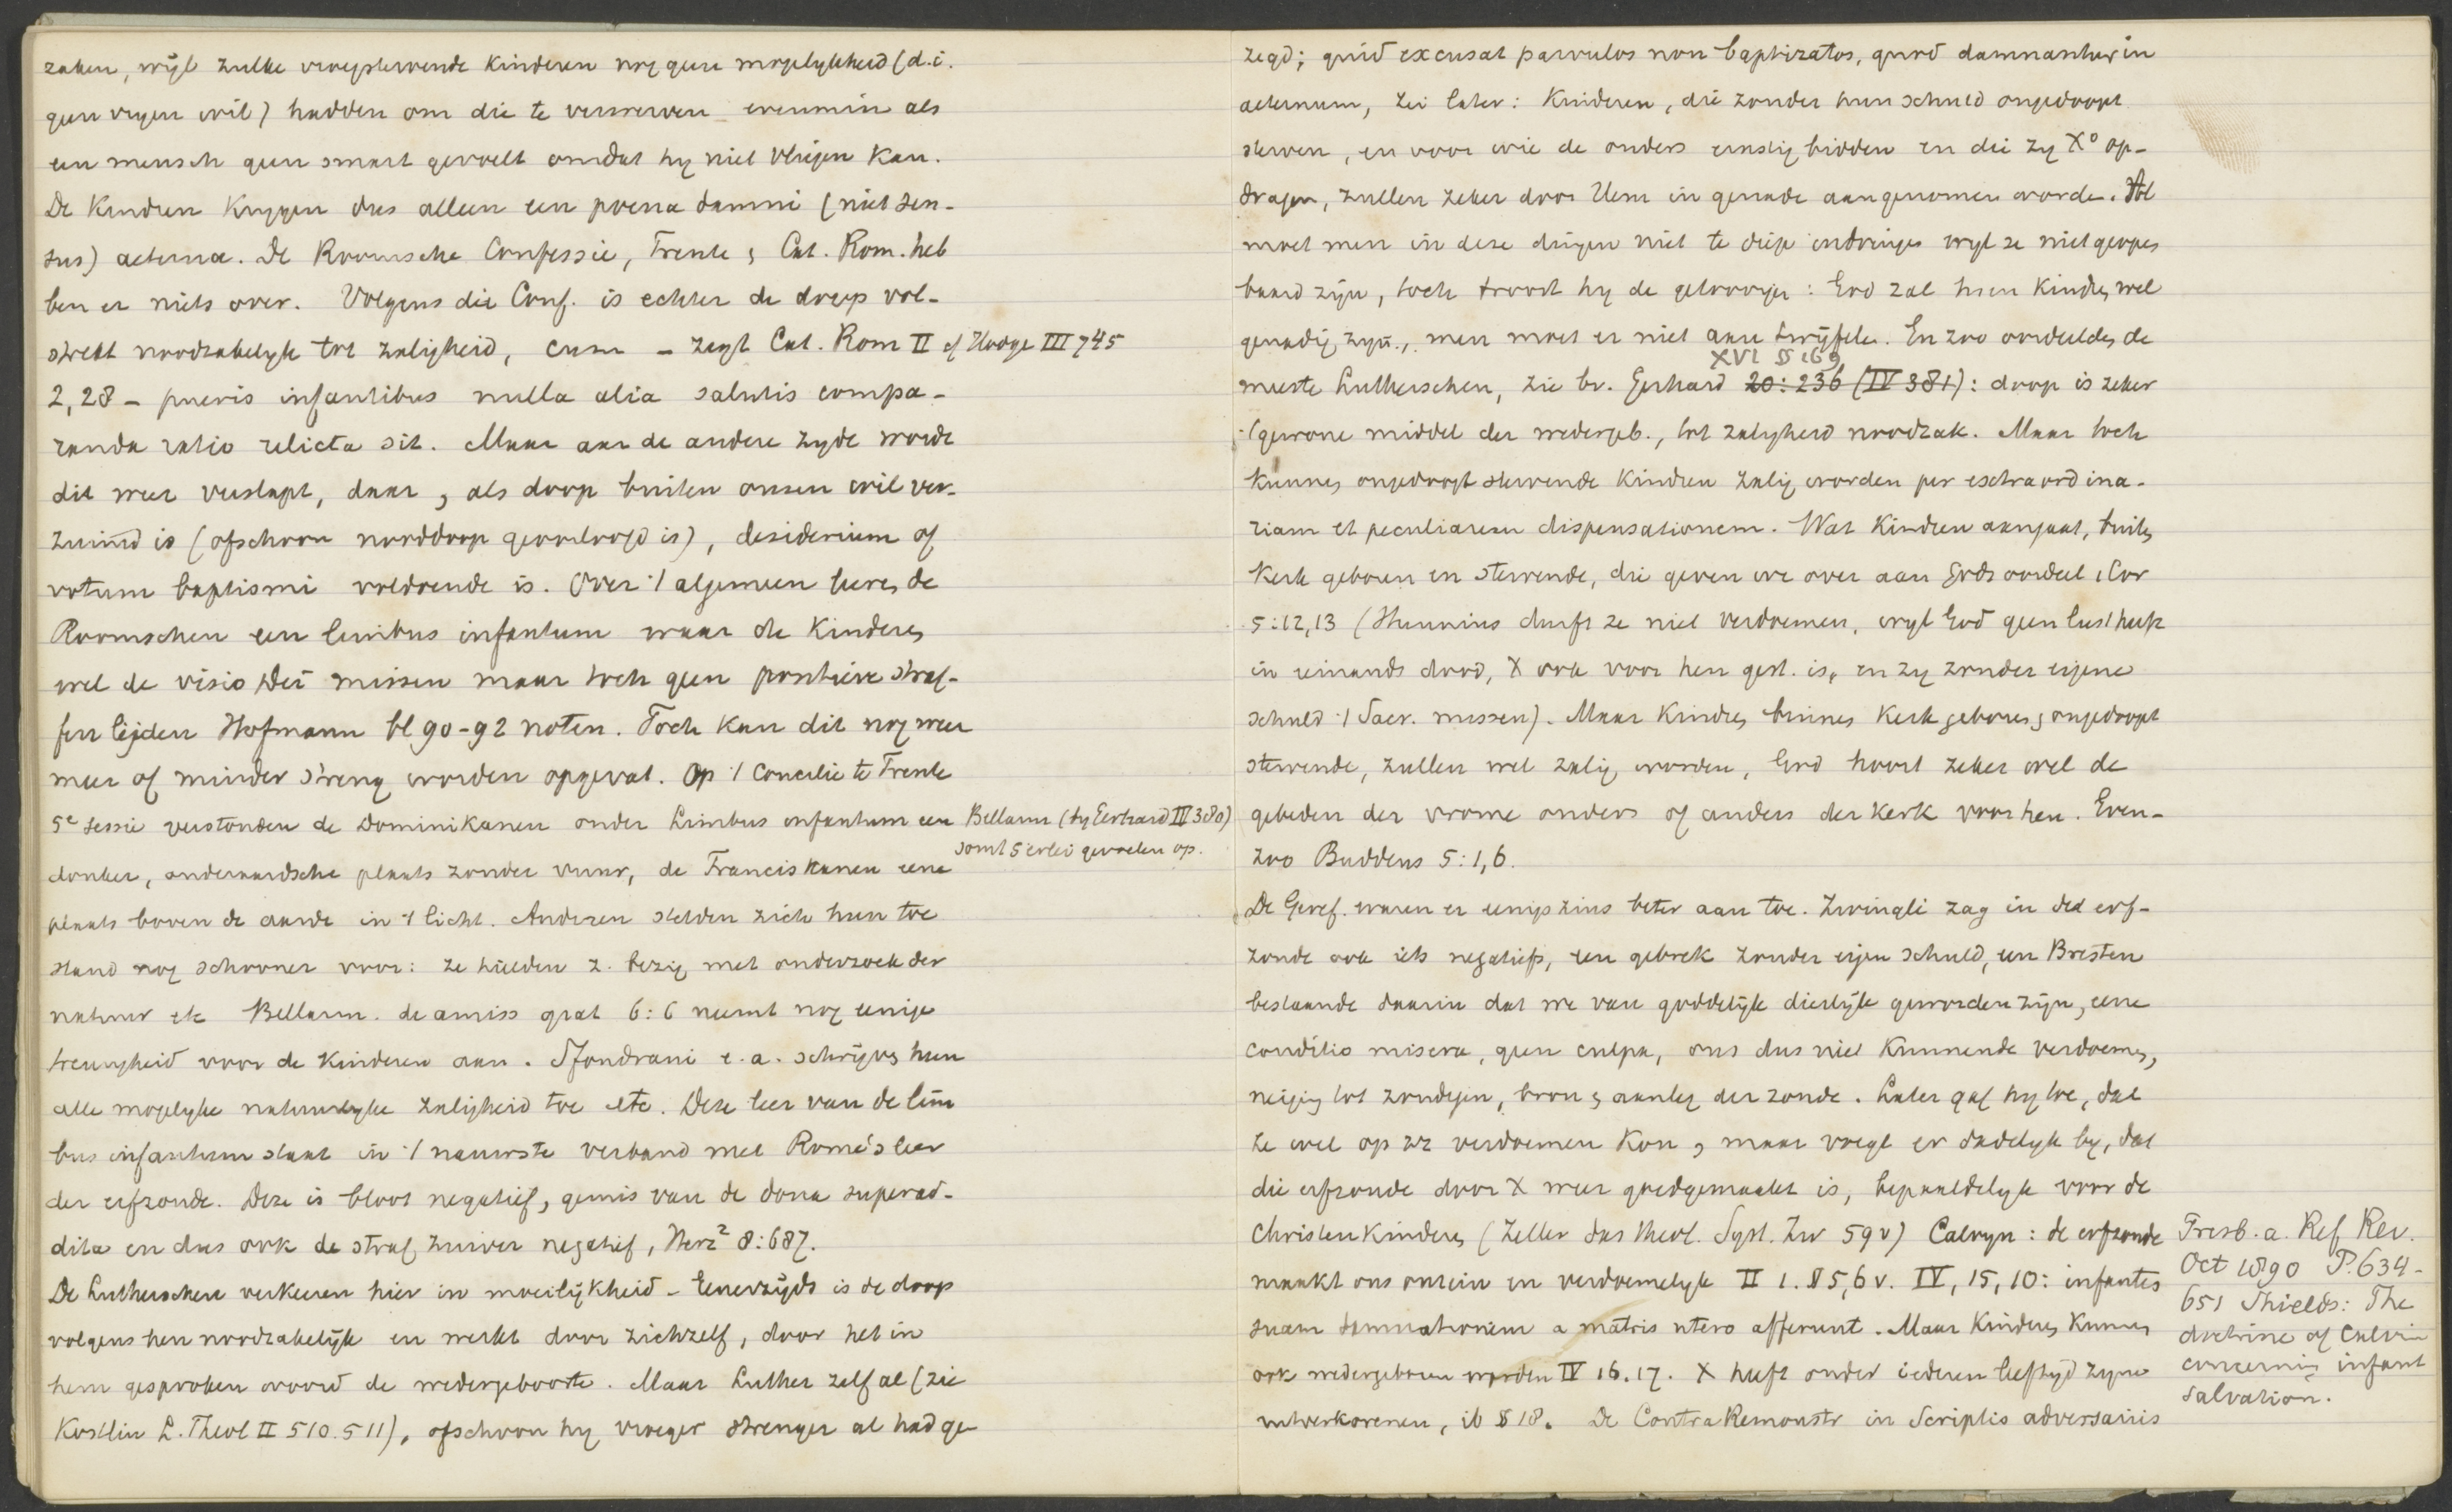 zaken, wijl zulke vroegstervende kinderen nog geen mogelykheid (d.i.
geen vryen wil) hadden om die te verwerven evenmin als
een mensch geen smart gevoelt omdat hy niet vliegen kan.
De kindren krygen dus alleen een poena damni (niet sen-
sus) aeterna. De Roomsche Confessie, Trente, Cat. Rom. heb
ben er niets over. Volgens die Conf. is echter de doop vol-
strekt noodzakelyk tot zaligheid, cum - zegt Cat. Rom II cf Hodge III 745
2,28 - pueris infantibus nulla alia salutis compa-
randa ratio relicta sit. Maar aan de andere zyde wordt
dit weer verslapt, daar, als doop buiten onzen wil ver-
zuimd is (ofschoon nooddoop geoorloofd is), desiderium of
votum baptismi voldoende is. Over 't algemeen leeren de
Roomschen een limbus infantum waar de kinderen
wel de visio Dei missen maar toch geen positieve straf-
fen lijden Hofmann bl 90-92 noten. Toch kan dit nog weer
meer of minder streng worden opgevat. Op 't Concilie te Trente
5e sessie verstonden de Dominikanen onder Limbus infantum een
Bellarm (by Gerhard IV 380)
somt 5 erlei gevoelen op.
donker, onderaardsche plaats zonder vuur, de Franciskanen eene
plaats boven de aarde in 't licht. Anderen stelden zich hun toe
stand nog schooner voor: ze hielden z. bezig met onderzoek der
natuur etc Bellarm. de amiss grat 6:6 neemt nog eenige
treurigheid voor de kinderen aan. Sfondrani e.a. schrijven hun
alle mogelyke natuurlyke zaligheid toe etc. Deze leer van de lim
bus infantum staat in 't nauwste verband met Rome's leer
der erfzonde. Deze is bloot negatief, gemis van de dona superad-
dita en dus ook de straf zuiver negatief, Herz² 8:687.
De Lutherschen verkeeren hier in moeilijkheid - Eenerzijds is de doop
volgens hen noodzakelijk en werkt door zichzelf, door het in
hem gesproken woord de wedergeboorte. Maar Luther zelf al (zie
Kostlin L. Theol II 510. 511), ofschoon hy vroeger strenger al had ge
zegd; quid excusat parvulos non baptizatos, quod damnantur in
aeternum, zei later: Kinderen, die zonder hun schuld ongedoopt
sterven, en voor wie de ouders ernstig bidden en die zy Xo op-
dragen, zullen zeker door Hem in genade aangenomen worde. Al
moet men in deze dingen niet te diep indringen wyl ze niet geopen
baard zijn, toch troost hy de geloovigen: God zal hun kindren wel
genadig zyn., men moet er niet aan twijfele. En zoo oordeelden de
XVI § 169
meeste Lutherschen, zie bv. Gerhard 20:236 (IV 381): doop is zeker
't gewone middel der wedergeb., tot zalygheid noodzak. Maar toch
kunnen ongedoopt stervende kindren zalig worden per extraordina-
riam et peculiarem dispensationem. Wat kindren aangaat, buiten
kerk geboren en stervende, die geven we over aan Gods oordeel 1 Cor
5:12,13 (Hunnius durft ze niet verdoemen, wyl God geen lust heeft
in iemands dood, X ook voor hen gest. is, en zy zonder eigene
schuld 't Sacr. missen). Maar kindren binnen kerk geboren, ongedoopt
stervende, zullen wel zalig worden, God hoort zeker wel de
gebeden der vrome ouders of anders der kerk voor hen. Even-
zoo Buddeus 5:1,6.
De Geref. waren er eenigszins beter aan toe. Zwingli zag in de erf-
zonde ook iets negatiefs, een gebrek zonder eigen schuld, een Bresten
bestaande daarin dat we van goddelijk dierlijk geworden zijn, eene
conditio misera, geen culpa, ons dus niet kunnende verdoemen,
neiging tot zondigen, bron, aanleg der zonde. Later gaf hy toe, dat
ze wel op zz verdoemen kon, maar voegt er dadelyk by, dat
die erfzonde door X weer goedgemaakt is, bepaaldelyk voor de
Christenkinderen (Zeller das theol. Syst. Zw 59 v) Calvyn: de erfzonde
maakt ons onrein en verdoemelyk II 1. § 5,6 v. IV, 15, 10: infantes
suam damnationem a matris utero afferunt. Maar kinderen kunnen
ook wedergeboren worden IV 16. 17. X heeft onder iederen leeftyd zyne
uitverkorenen, ib § 18. De Contra Remonstr in Scriptis adversariis
Presb. a. Ref Rev.
Oct 1890 P. 634-
651 Shields: The
doctrine of Calvin
concerning infant
salvation.